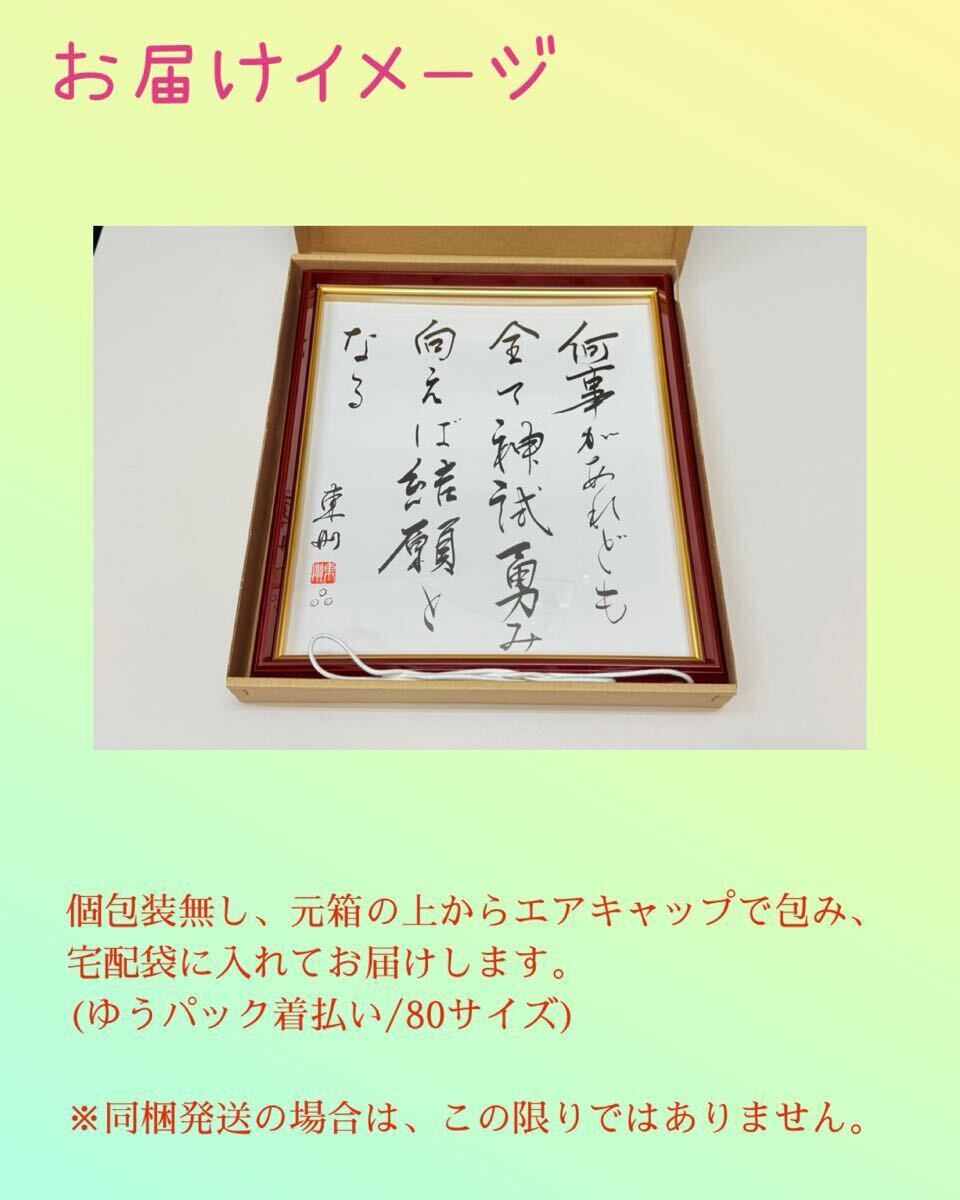 お届けイメージ
何事があれども
全て神試勇み
向えば結願と
なる
東州
個包装無し、元箱の上からエアキャップで包み、
宅配袋に入れてお届けします。
(ゆうパック着払い/80サイズ)
※同梱発送の場合は、この限りではありません。